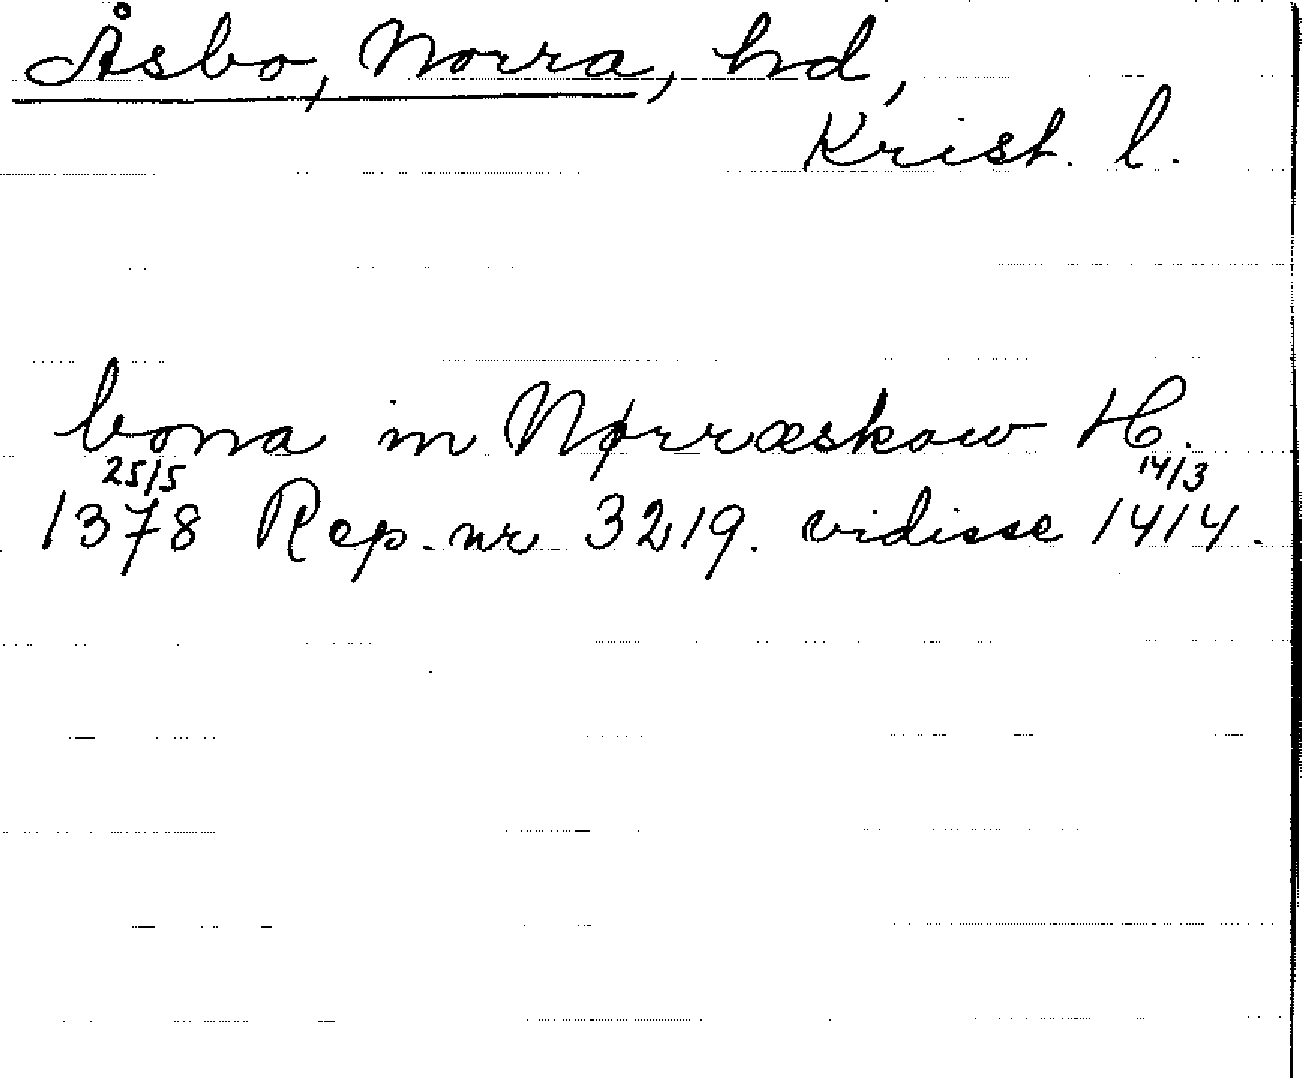 Åsbo, Norra, hd,
Krist. l.
bona in Nørræskow H.
25/5 14/3
1378 Rep. nr 3219. vidisse 1414.